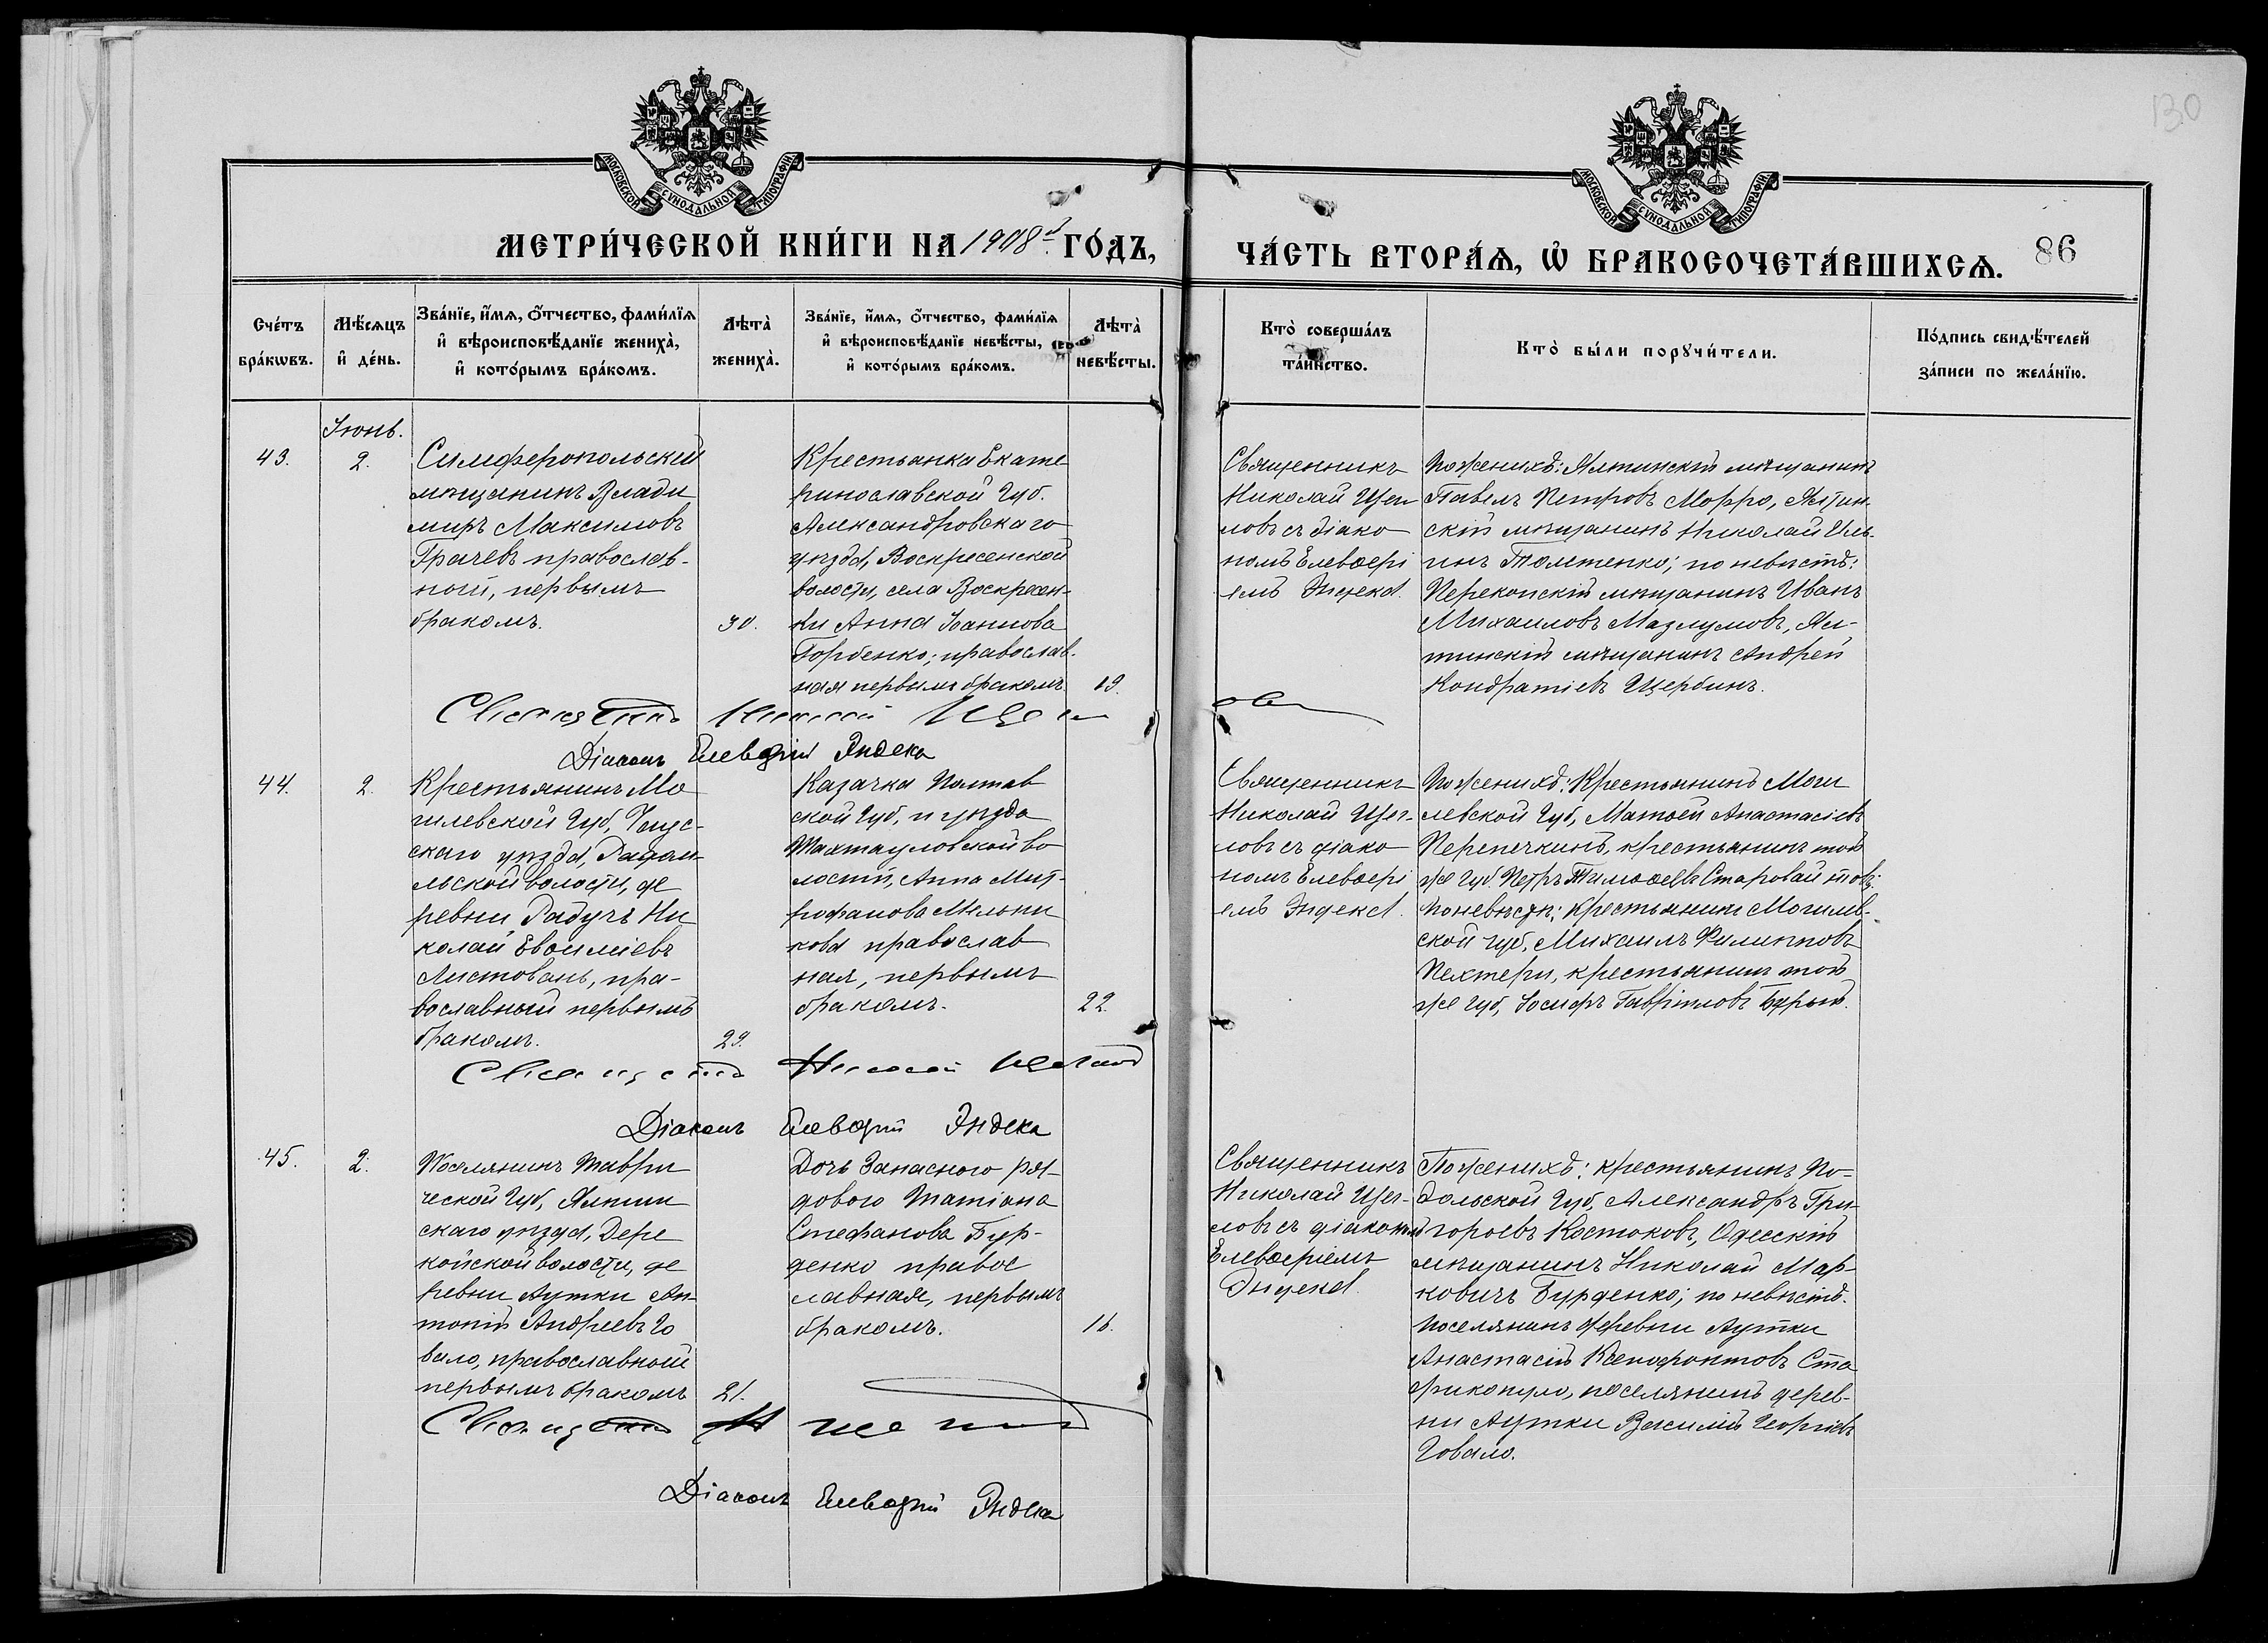 130
МОСКОВСКОЙ СѴНОДАЛЬНОЙ ТИПОГРАФІИ
МОСКОВСКОЙ СѴНОДАЛЬНОЙ ТИПОГРАФІИ
МЕТРИ́ЧЕСКОЙ КНИ́ГИ НА 1908й ГО́ДЪ,
ЧА́СТЬ ВТОРА́Ѧ, Ѡ҆ БРАКОСОЧЕТА́ВШИХСѦ.
86
Сче́тъ
бра́кѡвъ.
Мѣ́сѧцъ
и҆ де́нь.
Зва́нїе, и҆́мѧ, ѻ҆́тчество, фами́лїѧ
и҆ вѣроисповѣ́данїе жениха̀,
и҆ кото́рымъ бра́комъ.
Лѣта̀
жениха̀.
Зва́нїе, и҆́мѧ, ѻ҆́тчество, фами́лїѧ
и҆ вѣроисповѣ́данїе невѣ́сты,
и҆ кото́рымъ бра́комъ.
Лѣта̀
невѣ́сты.
Кто̀ соверша́лъ
та́инство.
Кто̀ бы́ли порꙋчи́тели.
По́дпись свидѣ́телей
за́писи по жела́нїю.
Іюнь.
43.
2.
Симферопольскій
мѣщанинъ Влади
миръ Максимовъ
Грачевъ православ-
ный, первымъ
бракомъ.
30.
Крестьянка Екате
ринославской Губ.
Александровскаго
уѣзда, Воскресенской
волости, села Воскресен-
ки Анна Іоаннова
Горбенко; православ-
ная первымъ бракомъ.
19.
Священникъ
Николай Щег
ловъ съ діако
номъ Елевѳері
емъ Эндека.
По женихѣ: Ялтинскій мѣщанинъ
Павелъ Петровъ Морро, Ялтин-
скій мѣщанинъ Николай Иль-
инъ Толстенко; по невѣстѣ:
Перекопскій мѣщанинъ Иванъ
Михаиловъ Мазлумовъ, Ял-
тинскій мѣщанинъ Андрей
Кондратіевъ Щербинъ.
Священникъ Николай Щегловъ
Діаконъ Елевѳерій Эндека
44.
2.
Крестьянинъ Мо
гилевской Губ, Чаус-
скаго уѣзда,
льской волости, де
ревни Радучъ Ни
колай Евѳиміевъ
Листовань, пра-
вославный первымъ
бракомъ.
29.
Казачка Полтав
ской Губ, и уѣзда
Тахтауловской во
лости, Анна Мит-
рофанова Мельни
кова православ
ная, первымъ
бракомъ.
22.
Священникъ
Николай Щег-
ловъ съ діако
номъ Елевѳері
емъ Эндека.
По женихѣ: Крестьянинъ Моги
левской Губ, Матвей Анастасіевъ
Перепечкинъ, крестьянинъ той
же Губ. Петръ Тимоѳеевъ
По невѣстѣ; Крестьянинъ Могилев-
ской губ, Михаилъ Филипповъ
Пехтеръ, крестьянинъ той
же Губ, Іосифъ Гавріиловъ
Священникъ Николай Щегловъ
Діаконъ Елевѳерій Эндека
45.
2.
Поселянинъ Таври
ческой Губ, Ялтин
скаго уѣзда, Дере
койской волости, де
ревни Аутки Ан-
тоній Андреевъ Го
вало, православный
первымъ бракомъ
21.
Дочь Запасного ря-
дового Татіана
Стефанова Бур-
денко правос
лавная, первымъ
бракомъ.
16.
Священникъ
Николай Щег-
ловъ съ діакономъ
Елевѳеріемъ
Эндека.
По женихѣ: крестьянинъ По-
дольской Губ, Александръ Гри-
горьевъ Костюковъ, Одесскій
мѣщанинъ Николай Мар-
ковичъ Бурденко; по невѣстѣ.
Поселянинъ деревни Аутки
Анастасій Ксенофонтовъ Ста
фикопуло, поселянинъ дерев-
ни Аутки Василій Георгіевъ
Говало.
Священникъ Н Щегловъ
Діаконъ Елевѳерій Эндека